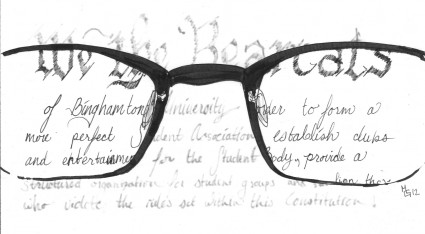 We the Bearcats
of Binghamton University order to form a
more perfect Student Association establish clubs
and entertainment for the Student Body, provide a
Structured organization for student groups and
who violate the rules set within this Constitution!